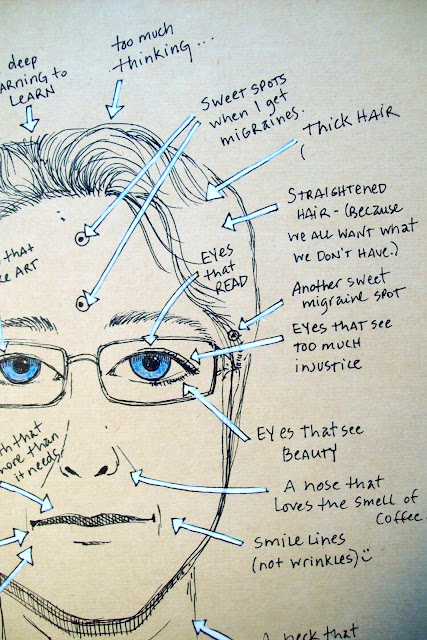 deep
to
LEARN
too much
thinking...
SWEET SPOTS
when I get
MIGRAINES.
THICK HAIR
STRAIGHTENED
HAIR - (BECAUSE
WE ALL WANT WHAT
WE DON'T HAVE.)
that
ART
EYES
that
READ
Another sweet
migraine spot
EYES that see
too much
INJUSTICE
EYES that see
BEAUTY
that
more than
it needs.
A nose that
loves the smell of
coffee.
SMILE LINES
(not wrinkles)☺
A neck that